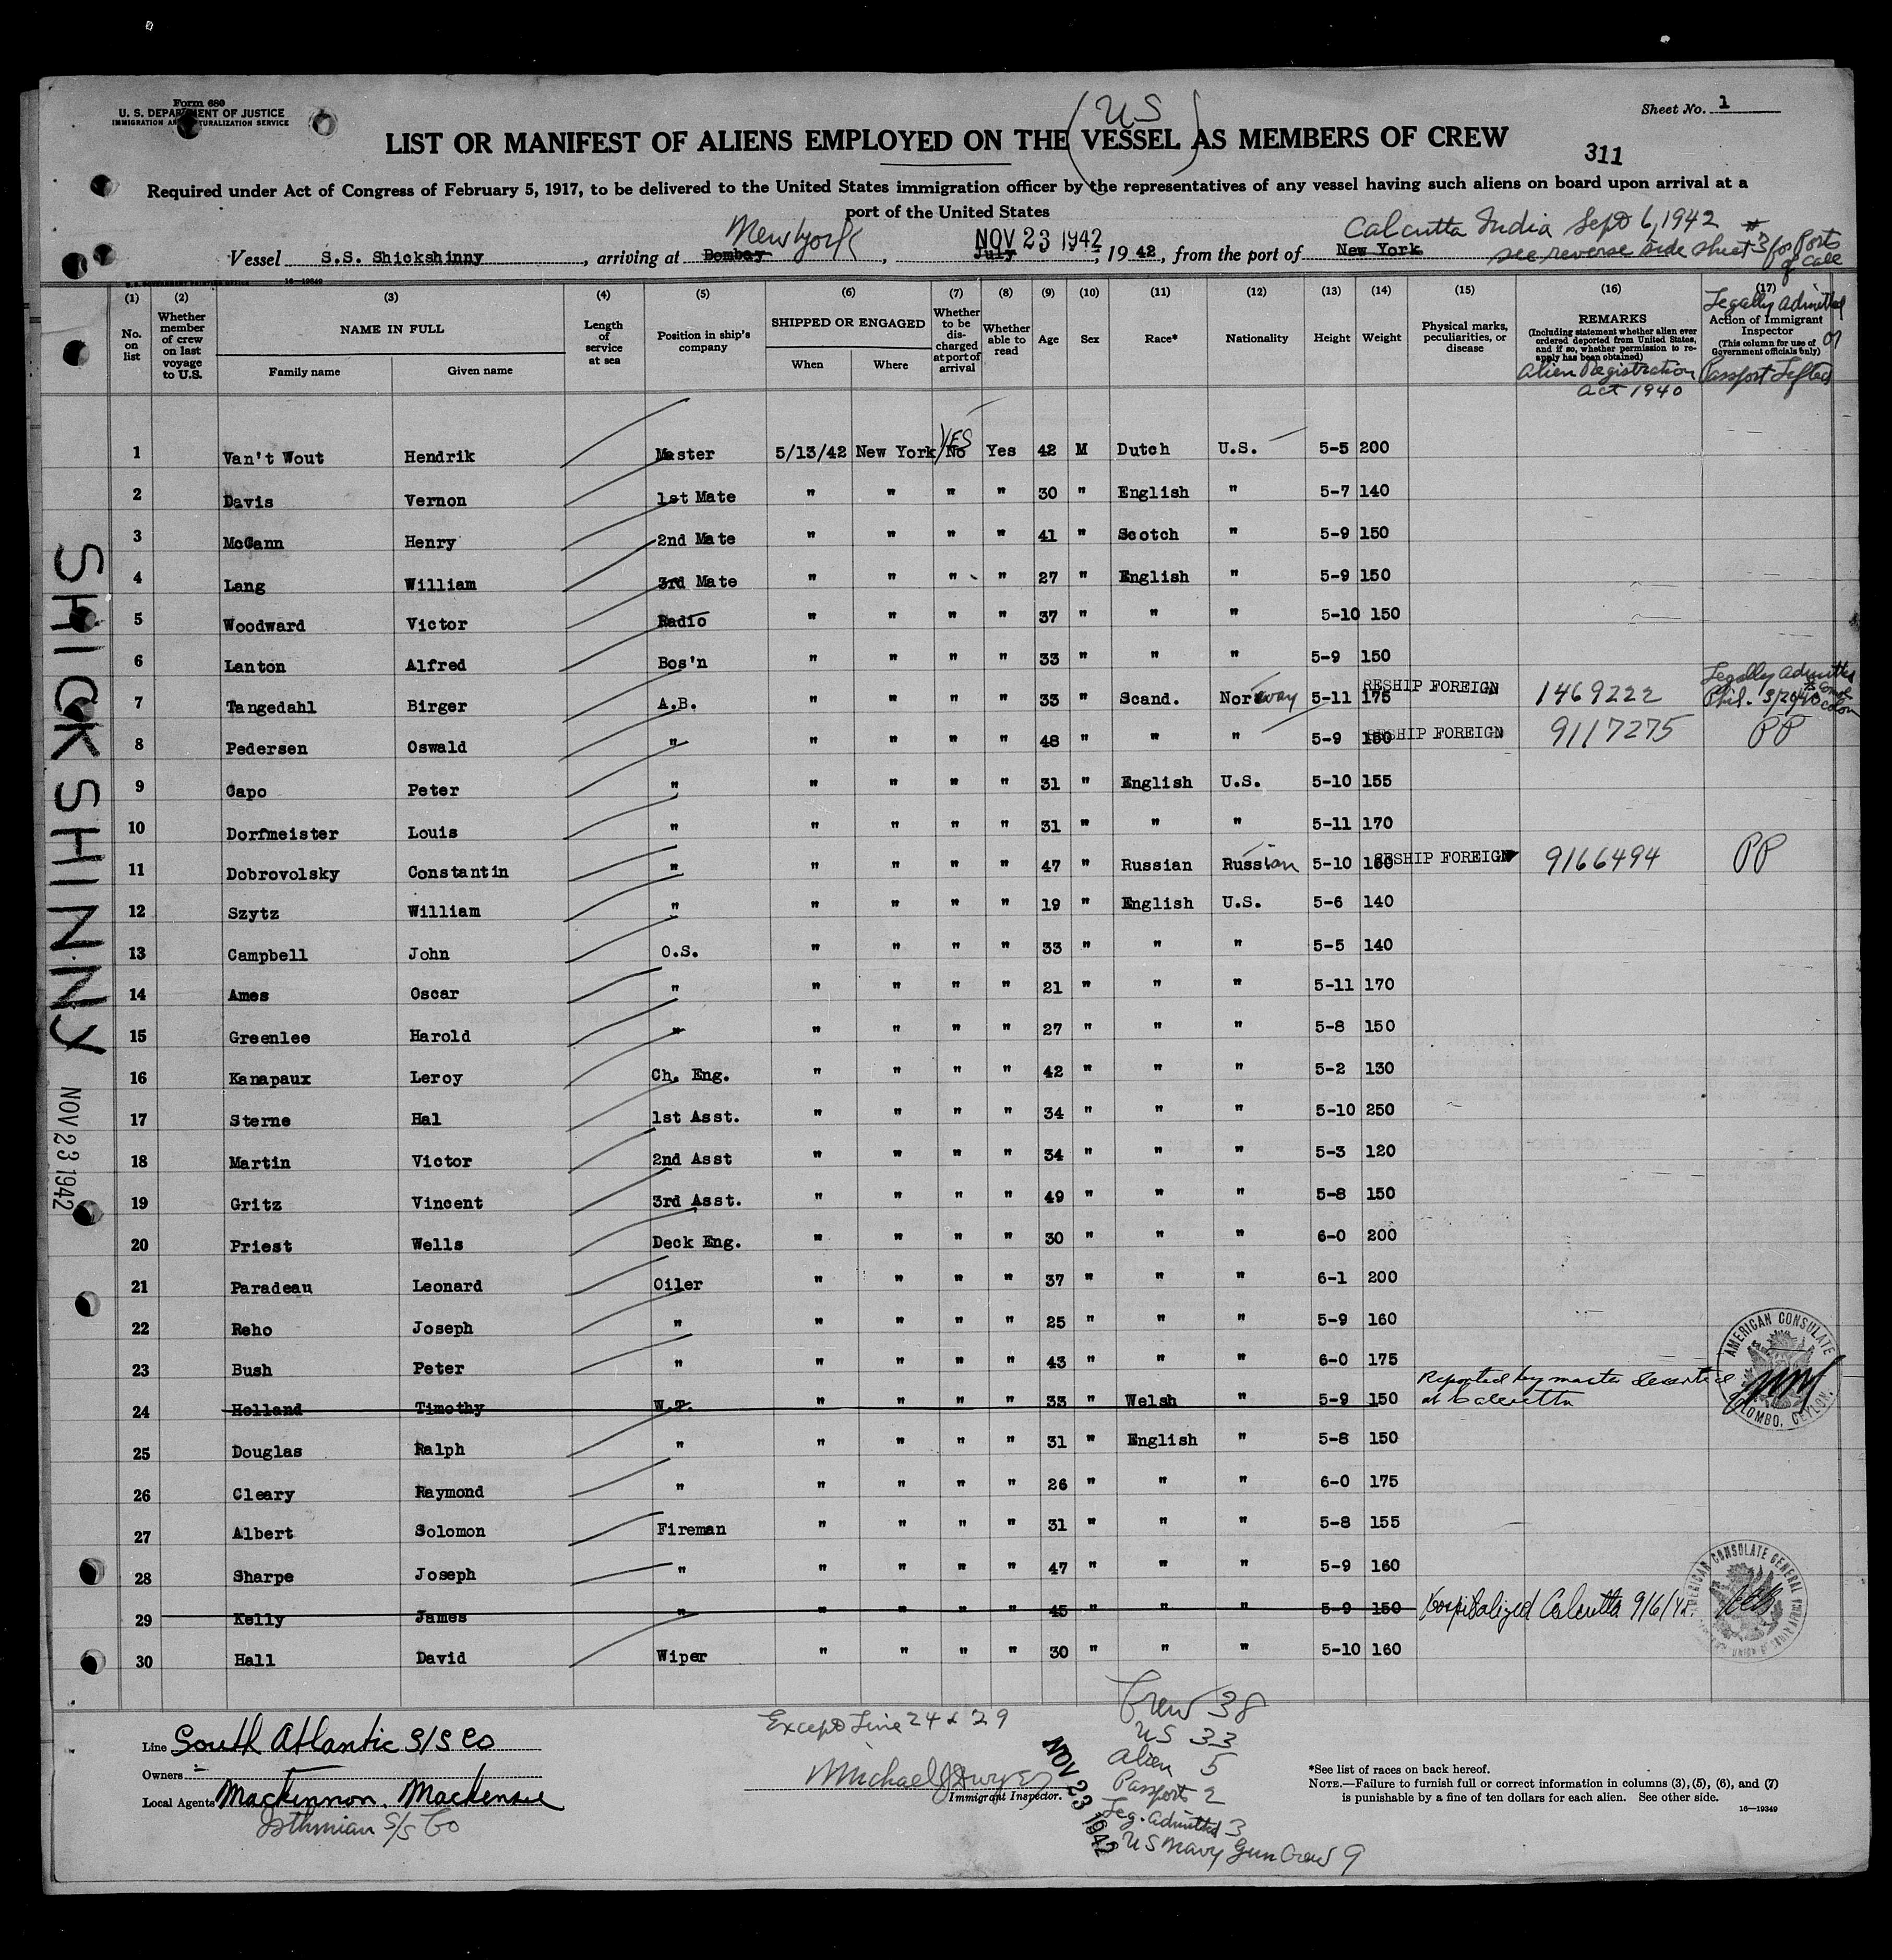 Form 680
U. S. DEPARTMENT OF JUSTICE
IMMIGRATION AND NATURALIZATION SERVICE
Sheet No. 1
(US)
LIST OR MANIFEST OF ALIENS EMPLOYED ON THE VESSEL AS MEMBERS OF CREW
311
Required under Act of Congress of February 5, 1917, to be delivered to the United States immigration officer by the representatives of any vessel having such aliens on board upon arrival at a
port of the United States
New York NOV 23 1942 Calcutta India Sept 6, 1942 *
Vessel S.S. Shickshinny, arriving at Bombay, July, 1942, from the port of New York see reverse side sheet 3 for Ports of Call
16-19349
(1) (2) (3) (4) (5) (6) (7) (8) (9) (10) (11) (12) (13) (14) (15) (16) (17)
No. on list
Whether member of crew on last voyage to U.S.
NAME IN FULL
Family name Given name
Length of service at sea
Position in ship's company
SHIPPED OR ENGAGED
When Where
Whether to be discharged at port of arrival
Whether able to read
Age
Sex
Race*
Nationality
Height
Weight
Physical marks, peculiarities, or disease
REMARKS
(Including statement whether alien ever ordered deported from United States, and if so, whether permission to reapply has been obtained)
Alien Registration Act 1940
Legally Admitted
Action of Immigrant Inspector
(This column for use of Government officials only)
or
Passport Lifted
1 Van't Wout Hendrik Master 5/13/42 New York No YES Yes 42 M Dutch U.S. 5-5 200
2 Davis Vernon 1st Mate " " " " 30 " English " 5-7 140
3 McGann Henry 2nd Mate " " " " 41 " Scotch " 5-9 150
4 Lang William 3rd Mate " " " " 27 " English " 5-9 150
5 Woodward Victor Radio " " " " 37 " " " 5-10 150
6 Lanton Alfred Bos'n " " " " 33 " " " 5-9 150
7 Tangedahl Birger A.B. " " " " 33 " Scand. Norway 5-11 175 RESHIP FOREIGN 1469222 Legally Admitted Phil. 3/20/40
8 Pedersen Oswald " " " " " 48 " " " 5-9 150 RESHIP FOREIGN 9117275 PP
9 Capo Peter " " " " " 31 " English U.S. 5-10 155
10 Dorfmeister Louis " " " " " 31 " " " 5-11 170
11 Dobrovolsky Constantin " " " " " 47 " Russian Russian 5-10 160 RESHIP FOREIGN 9166494 PP
12 Szytz William " " " " " 19 " English U.S. 5-6 140
13 Campbell John O.S. " " " " 33 " " " 5-5 140
14 Ames Oscar " " " " " 21 " " " 5-11 170
15 Greenlee Harold " " " " " 27 " " " 5-8 150
16 Kanapaux Leroy Ch. Eng. " " " " 42 " " " 5-2 130
17 Sterne Hal 1st Asst. " " " " 34 " " " 5-10 250
18 Martin Victor 2nd Asst " " " " 34 " " " 5-3 120
19 Gritz Vincent 3rd Asst. " " " " 49 " " " 5-8 150
20 Priest Wells Deck Eng. " " " " 30 " " " 6-0 200
21 Paradeau Leonard Oiler " " " " 37 " " " 6-1 200
22 Reho Joseph " " " " " 25 " " " 5-9 160
23 Bush Peter " " " " " 43 " " " 6-0 175
24 Holland Timothy W.T. " " " " 33 " Welsh " 5-9 150 Reported by master deserted at Calcutta
AMERICAN CONSULATE COLOMBO, CEYLON.
25 Douglas Ralph " " " " " 31 " English " 5-8 150
26 Cleary Raymond " " " " " 26 " " " 6-0 175
27 Albert Solomon Fireman " " " " 31 " " " 5-8 155
28 Sharpe Joseph " " " " " 47 " " " 5-9 160
29 Kelly James " " " " " 45 " " " 5-9 150 Hospitalized Calcutta 9/6/42
AMERICAN CONSULATE GENERAL
30 Hall David Wiper " " " " 30 " " " 5-10 160
SHICKSHINNY
NOV 23 1942
Line South Atlantic S/S Co
Owners "
Local Agents Mackinnon, Mackenzie
Isthmian S/S Co
Except Line 24 & 29
Michael J Dwyer
Immigrant Inspector.
NOV 23 1942
Crew 38
US 33
Alien 5
Passport 2
Leg. Admitted 3
US Navy Gun Crew 9
*See list of races on back hereof.
NOTE.—Failure to furnish full or correct information in columns (3), (5), (6), and (7)
is punishable by a fine of ten dollars for each alien. See other side.
16—19349